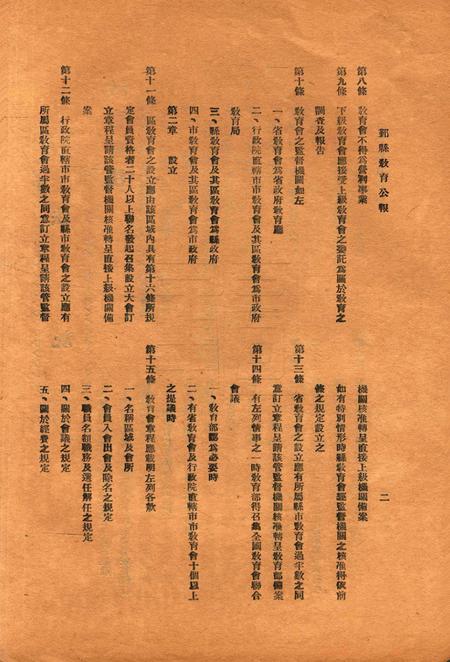 鄞縣教育公報
二
第八條　教育會不得爲營利事業
第九條　下級教育會應接受上級教育會之委託爲關於教育之
調查及報告
第十條　教育會之監督機關如左
一、省教育會爲省政府教育廳
二、行政院直轄市市教育會及其區教育會爲市政府
教育局
三、縣教育會及其區教育會爲縣政府
四、市教育會及其區教育會爲市政府
第二章　設立
第十一條　區教育會之設立應由該區域內具有第十六條所規
定會員資格者二十人以上聯名發起召集設立大會訂
立章程呈請該管監督機關核准轉呈直接上級機關備
案
第十二條　行政院直轄市市教育會及縣市教育會之設立應有
所屬區教育會過半數之同意訂立章程呈請該管監督
機關核准轉呈直接上級機關備案
如有特別情形時縣教育會經監督機關之核准得依前
條之規定設立之
第十三條　省教育會之設立應有所屬縣市教育會過半數之同
意訂立章程呈請該管監督機關核准轉呈教育部備案
第十四條　有左列情事之一時教育部得召集全國教育會聯合
會議
一、教育部認爲必要時
二、有省教育會及行政院直轄市市教育會十個以上
之提議時
第十五條　教育會章程應載明左列各款
一、名稱區域及會所
二、會員入會出會及除名之規定
三、職員名額職務及選任解任之規定
四、關於會議之規定
五、關於經費之規定